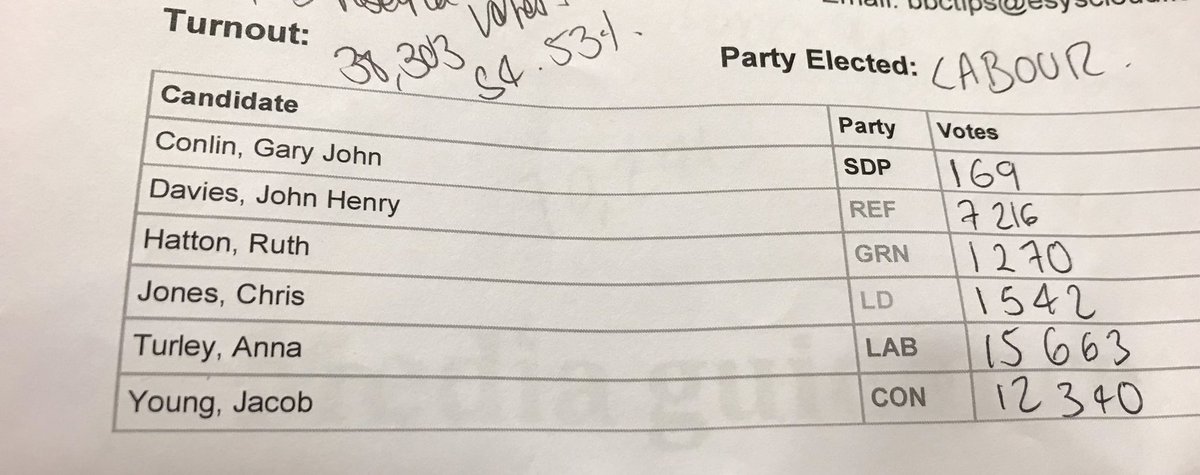 Turnout: 38,303 votes
54.53%.
Party Elected: LABOUR.
Candidate Party Votes
Conlin, Gary John SDP 169
Davies, John Henry REF 7216
Hatton, Ruth GRN 1270
Jones, Chris LD 1542
Turley, Anna LAB 15663
Young, Jacob CON 12340